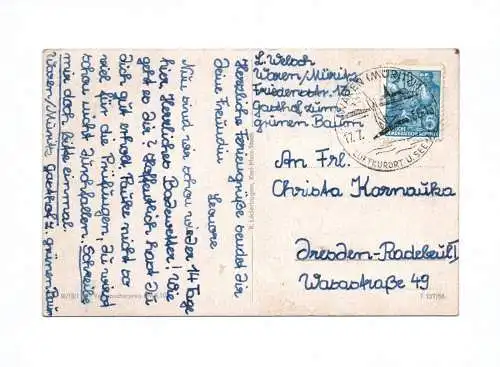 Nun sind wir schon wieder 14 Tage
hier. Herrliches Badewetter! Wie
geht es dir? Hoffentlich hast du
dich gut erholt. Pauke nicht so
viel für die Prüfungen, du wirst
schon nicht durchfallen. Schreibe
mir doch bitte einmal.
Waren/Müritz Gasthof z. grünen Baum
Herzliche Feriengrüße sendet dir
deine Freundin
L. Welsch
Waren/Müritz
Friedensstr. 12
Gasthof zum
grünen Baum
An Frl.
Christa Kornauka
Dresden-Radebeul 1
Wasastraße 49
WAREN (MÜRITZ)
17.7.
LUFTKURORT U.